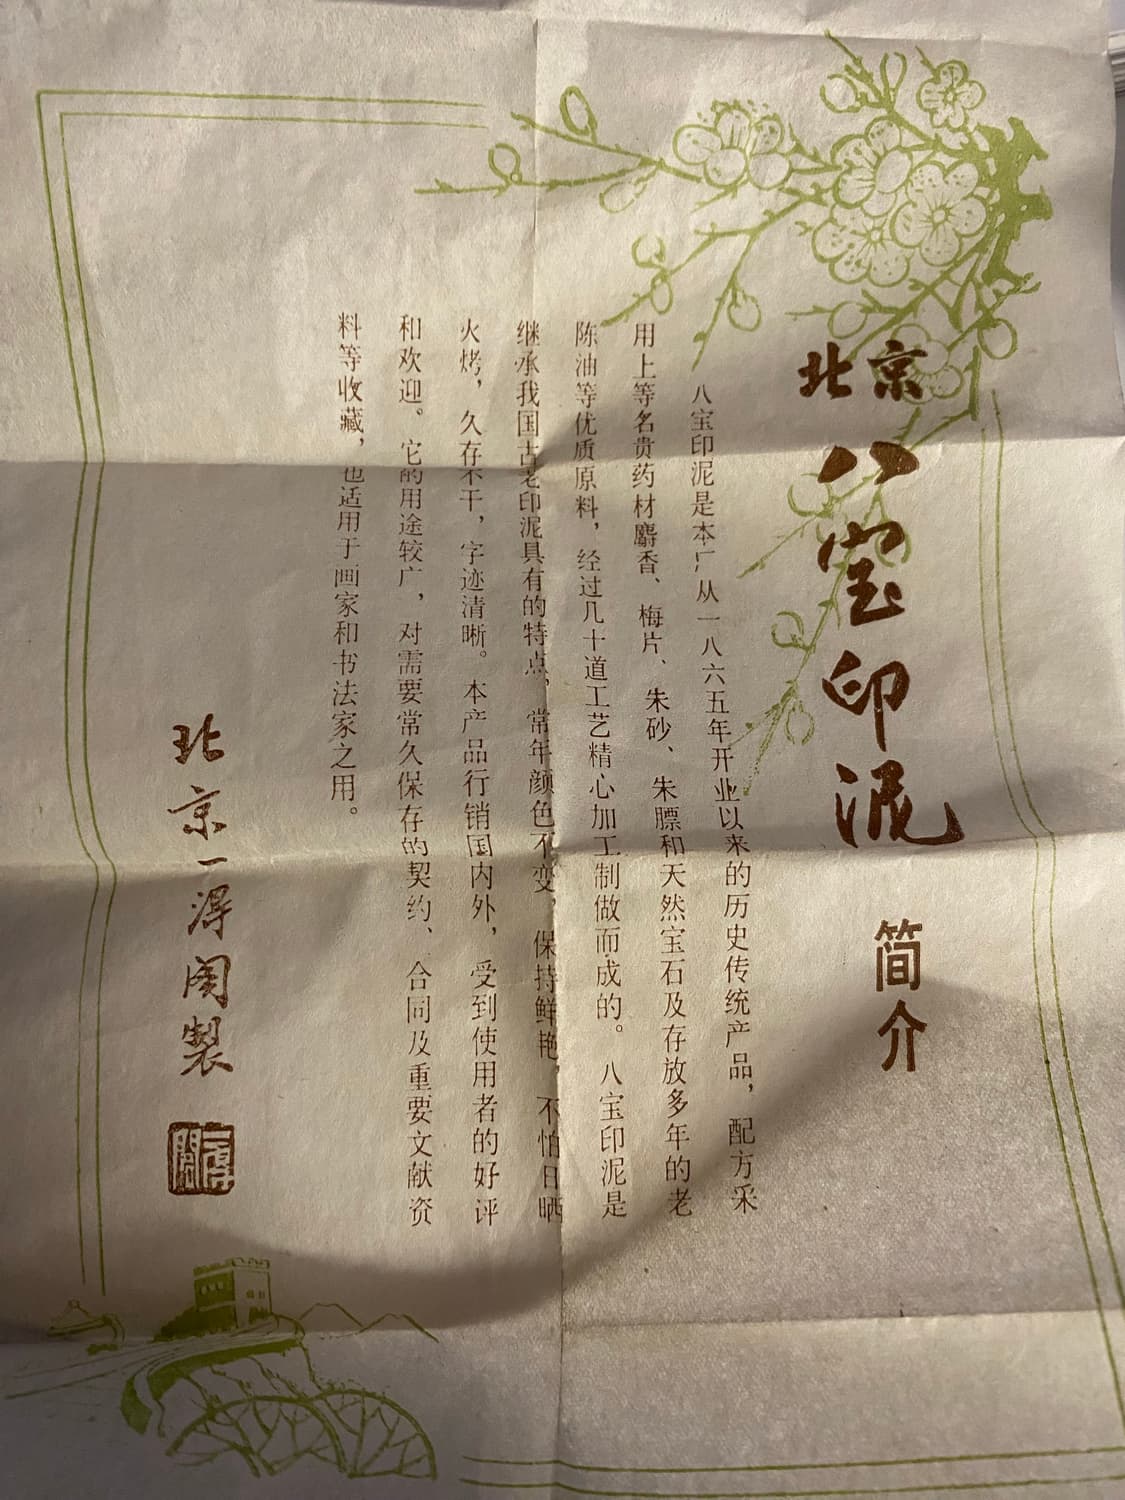 北京
八宝印泥 简介
八宝印泥是本厂从一八六五年开业以来的历史传统产品，配方采
用上等名贵药材麝香、梅片、朱砂、朱膘和天然宝石及存放多年的老
陈油等优质原料，经过几十道工艺精心加工制做而成的。八宝印泥是
继承我国古老印泥具有的特点，常年颜色不变，保持鲜艳，不怕日晒
火烤，久存不干，字迹清晰。本产品行销国内外，受到使用者的好评
和欢迎。它的用途较广，对需要常久保存的契约、合同及重要文献资
料等收藏，也适用于画家和书法家之用。
北京一得阁製
一得阁